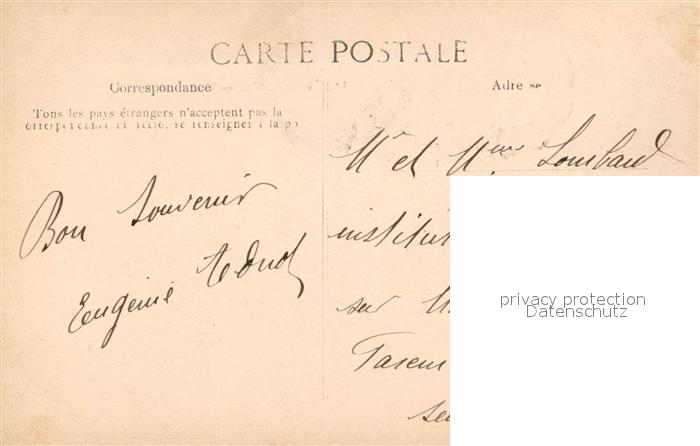 CARTE POSTALE
Correspondance
Tous les pays étrangers n'acceptent pas la
se renseigner à la po
Bon Souvenir
Eugénie
Adresse
Mr et Mme Lombard
institut
sur
privacy protection
Datenschutz